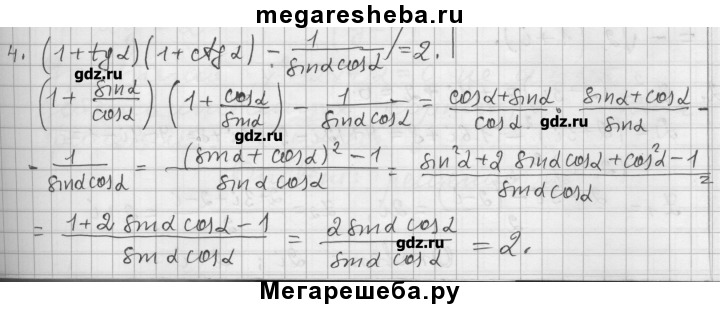 megaresheba.ru
4. (1+tgα)(1+ctgα) - 1/(sinα cosα) = 2.
gdz.ru
(1 + sinα/cosα) (1 + cosα/sinα) - 1/(sinα cosα) = (cosα+sinα)/cosα · (sinα+cosα)/sinα -
gdz.ru
gdz.ru
- 1/(sinα cosα) = ((sinα + cosα)² - 1)/(sinα cosα) = (sin²α + 2 sinα cosα + cos²α - 1)/(sinα cosα) =
= (1 + 2 sinα cosα - 1)/(sinα cosα) = (2 sinα cosα)/(sinα cosα) = 2.
gdz.ru
Мегарешеба.ру